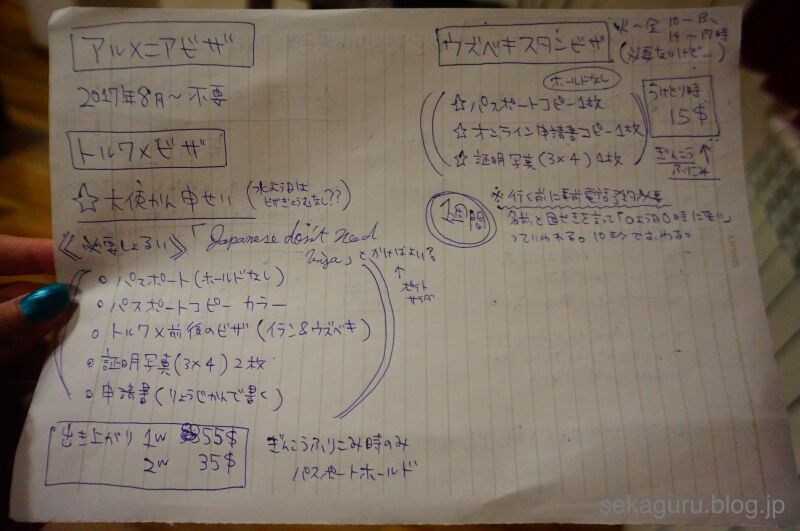 アルメニアビザ
2017年8月～不要
トルクメビザ
☆大使かん申せい (水よう日はビザぎょうむなし??)
《必要しょるい》「Japanese don't need Viza」とかけばよい?
↑
ポイント
○パスポート(ホールドなし)
○パスポートコピー カラー
○トルクメ前後のビザ(イラン&ウズベキ)
○証明写真(3×4)2枚
○申請書(りょうじかんで書く)
出き上がり 1w 55$
2w 35$
ぎんこうふりこみ時のみ
パスポートホールド
ウズベキスタンビザ
火～金 10～13、
14～17時
(必要ないけど…)
ホールドなし
☆パスポートコピー1枚
☆オンライン申請書コピー1枚
☆証明写真(3×4)1枚
うけとり時
15$
ぎんこう↑
ふりこみ
1週間
※行く前に事前電話予約必要
名前と国せきを言って「○よう日○時に来い」
っていわれる。10秒でおわる。
sekaguru.blog.jp